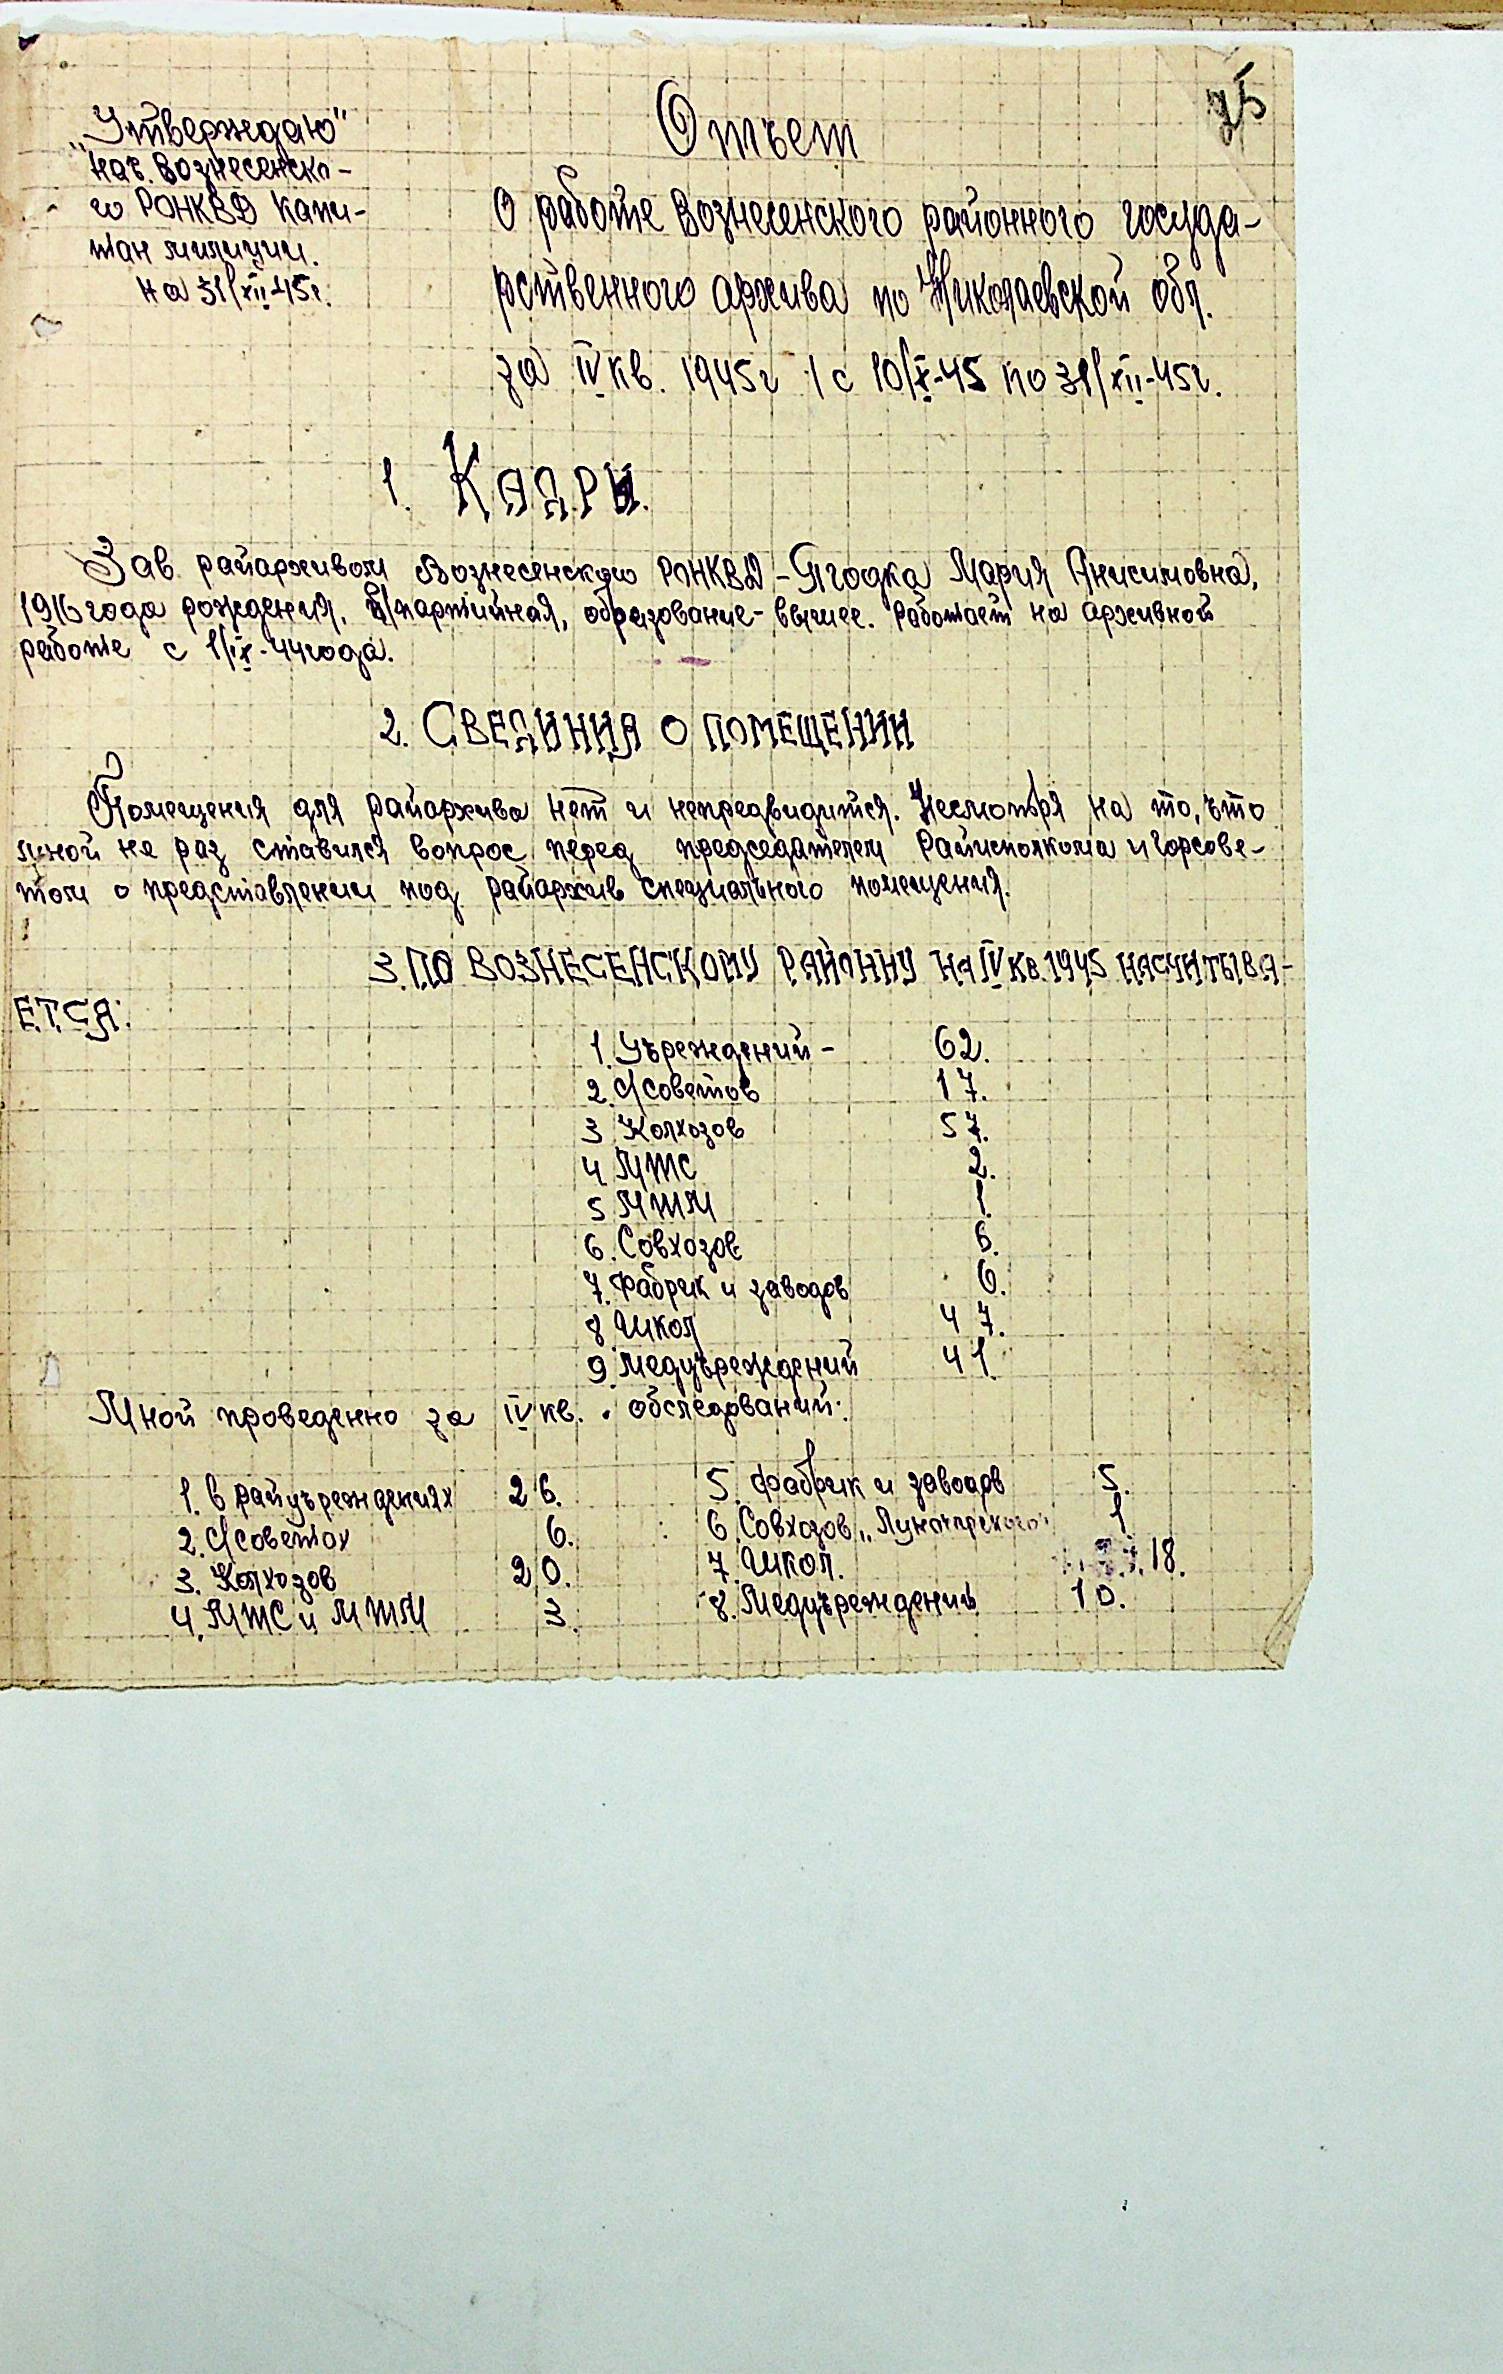 25
„Утверждаю"
Нач. Вознесенско-
го РОНКВД капи-
тан милиции.
на 31/XII-45г.
Отчет
О работе Вознесенского районного госуда-
рственного архива по Николаевской обл.
за IV кв. 1945г / с 10/X-45 по 31/XII-45г.
1. Кадры.
Зав. райархивом Вознесенского РОНКВД - Ягодка Мария Анисимовна,
1916 года рождения, б/партийная, образование - высшее. Работает на архивной
работе с 1/IX-44 года.
2. СВЕДИНИЯ О ПОМЕЩЕНИИ
Помещения для райархива нет и непредвидится. Несмотря на то, что
мной не раз ставился вопрос перед председателем Райисполкома и Горсове-
том о представлении под райархив специального помещения.
3. ПО ВОЗНЕСЕНСКОМУ РАЙОННУ НА IV КВ. 1945 НАСЧИТЫВА-
ЕТСЯ:
1. Учреждений - 62.
2. С/советов 17.
3 Колхозов 57.
4 МТС 2.
5 МТМ 1.
6. Совхозов 6.
7. Фабрик и заводов 6.
8 Школ 47.
9. Медучреждений 41.
Мной проведенно за IV кв. обследований:
1. в райучреждениях 26. 5. Фабрик и заводов 5.
2. С/советах 6. 6. Совхозов „Луначарского" 1
3. Колхозов 20. 7. Школ. 18.
4. МТС и МТМ 3. 8. Медучреждений 10.